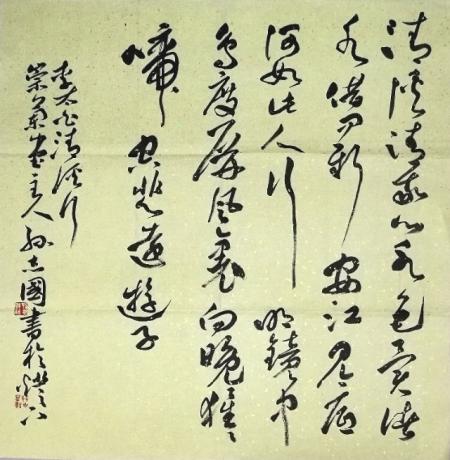 清溪清我心水色異諸
水借問新安江見底
何如此人行明鏡中
鳥度屏風裏向晚猩猩
啼空悲遠遊子
李太白清溪行
主人孫志國書於